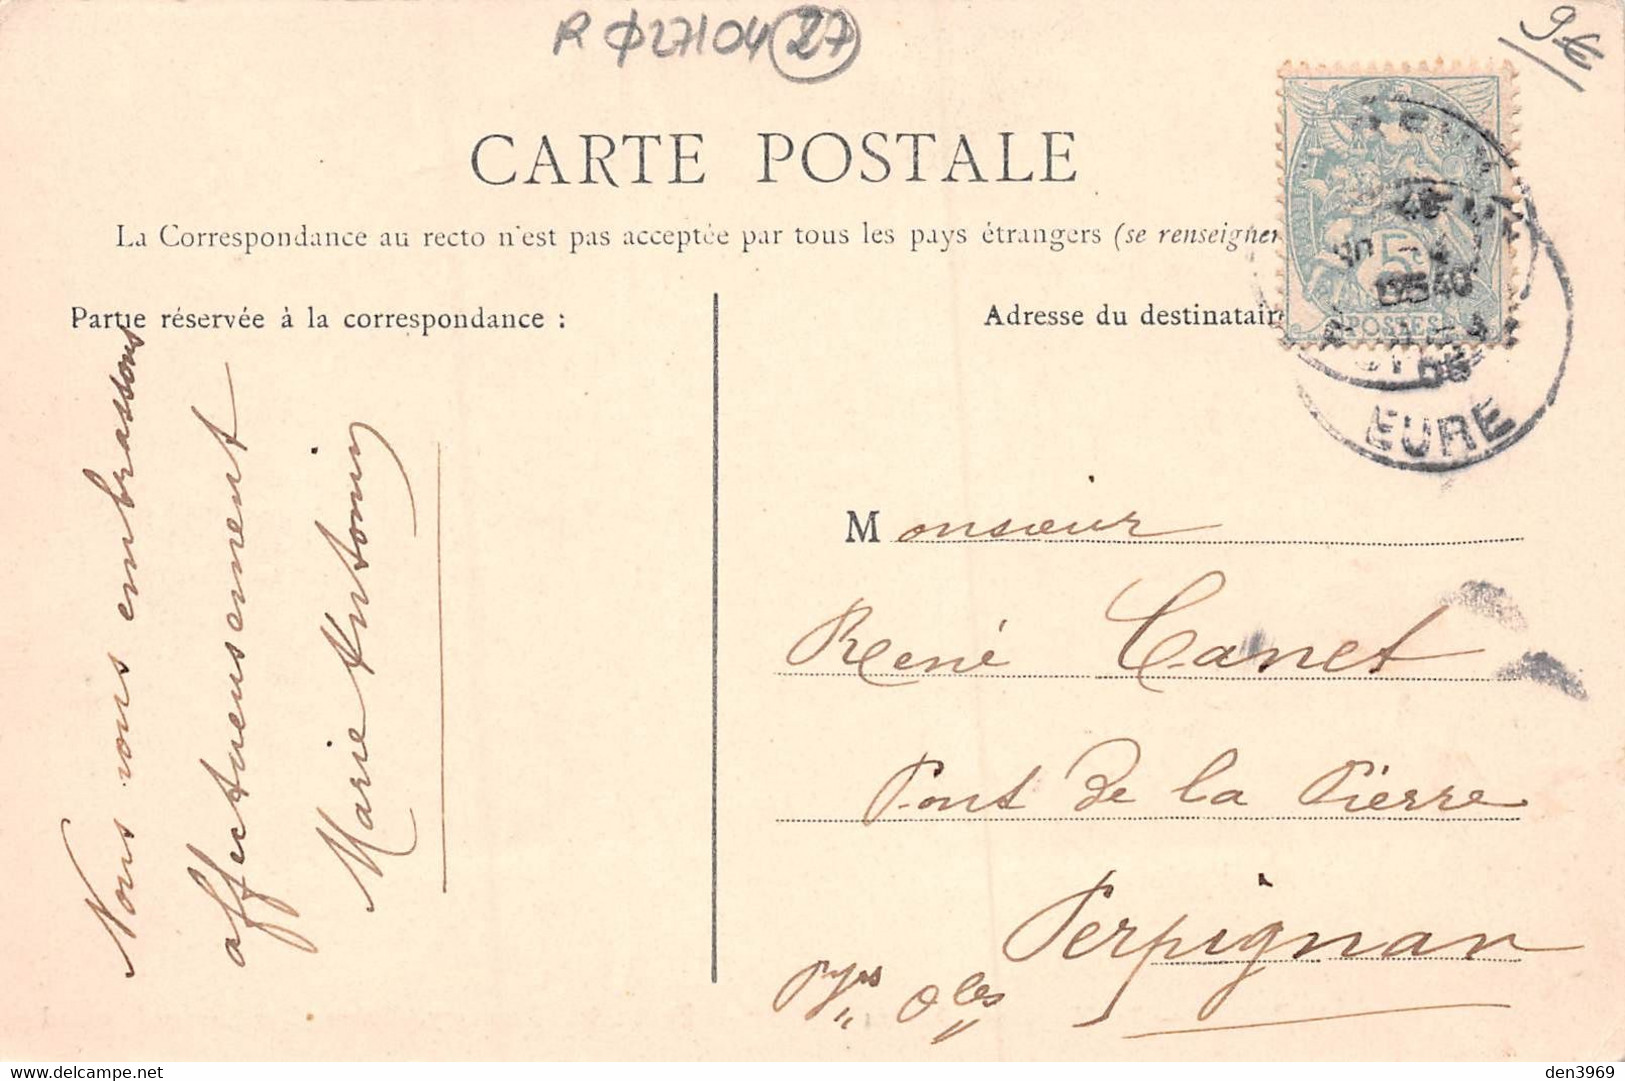 R Φ27104 27
9 €
CARTE POSTALE
La Correspondance au recto n'est pas acceptée par tous les pays étrangers (se renseigner
Partie réservée à la correspondance :
Adresse du destinatair
5c
POSTES
EURE
Monsieur
René Canet
Pont de la Pierre
Perpignan
Pyes Oles
Nous vous embrassons
affectueusement
Marie
den3969